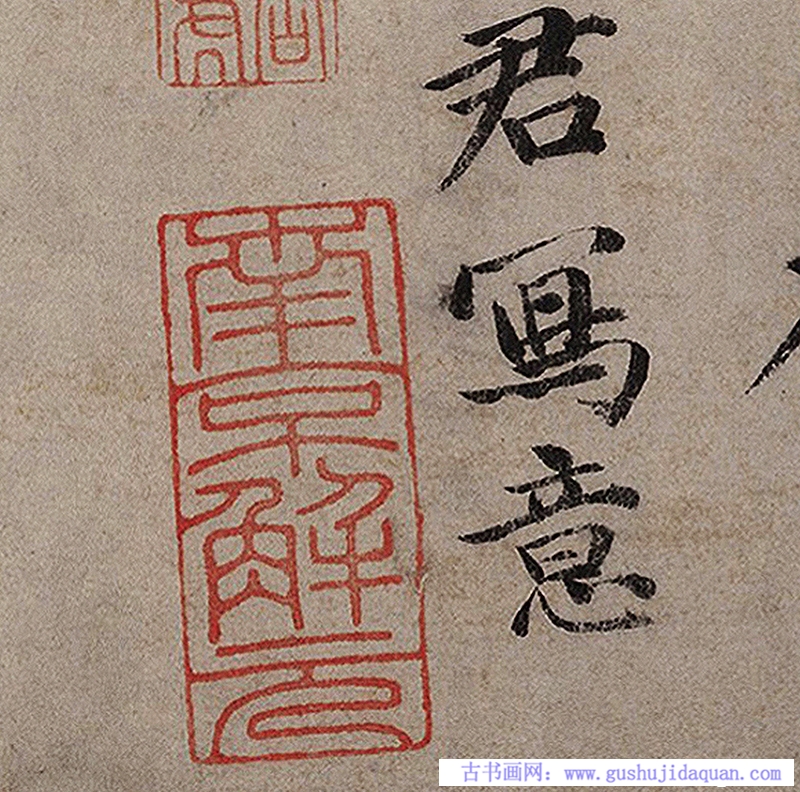 君寫意
南京解元
古书画网：www.gushujidaquan.com